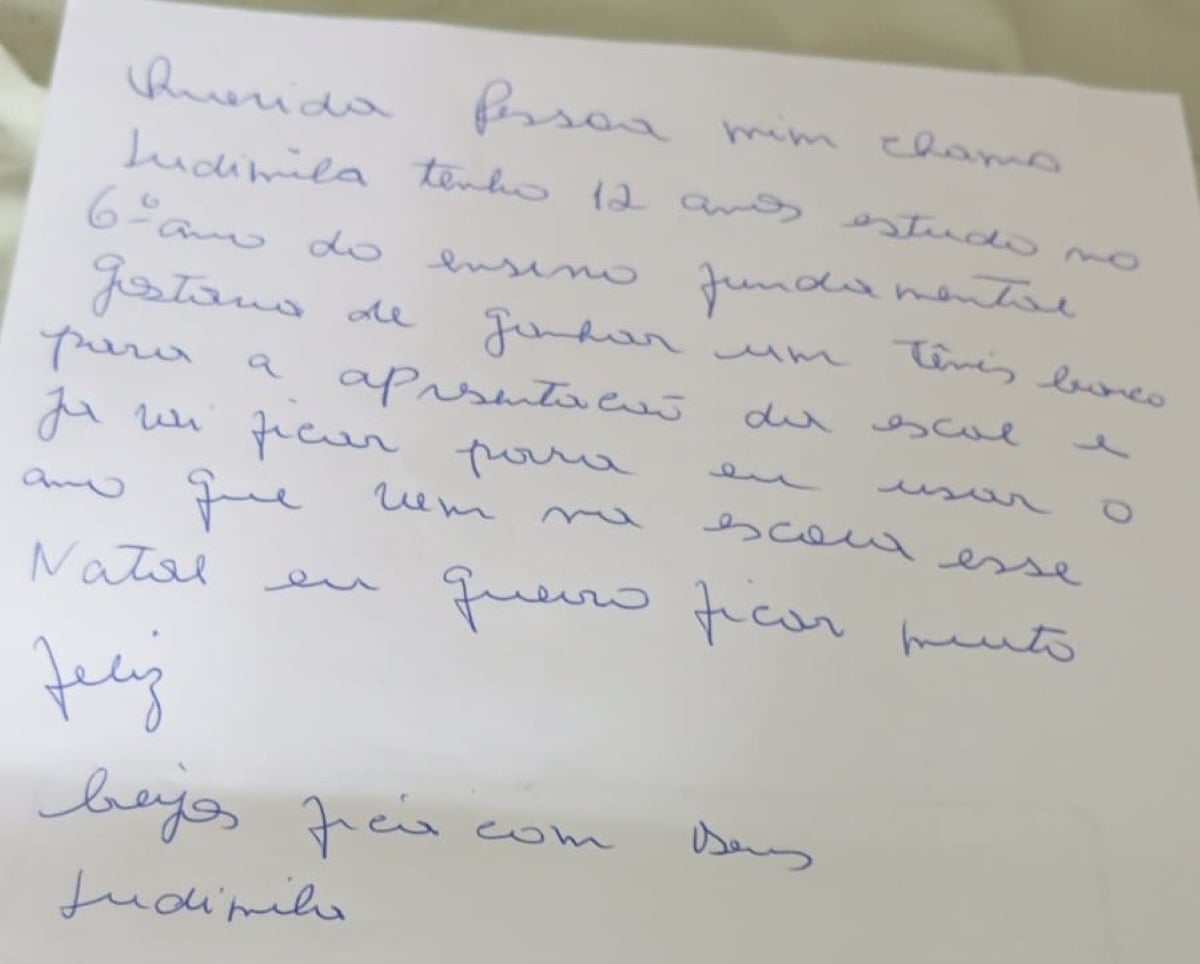 Querida Pessoa mim chamo
Ludimila tenho 12 anos estudo no
6º ano do ensino fundamental
gostaria de ganhar um tênis branco
para a apresentação da escol e
Ja vai ficar para eu usar o
ano que vem na escola esse
Natal eu quero ficar muito
feliz
beijos fica com Deus
Ludimila